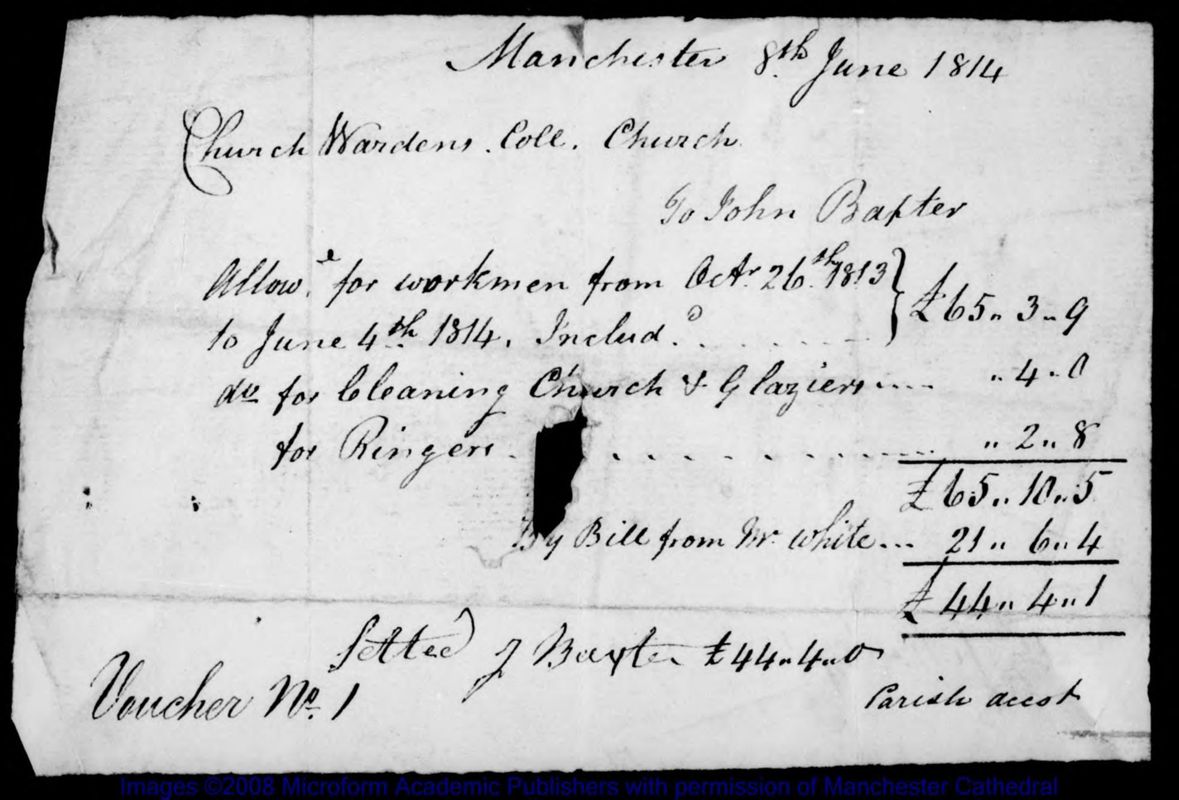 Manchester 8th June 1814
Church Wardens. Coll. Church
To John Baxter
Allowe. for workmen from Octr. 26th. 1813 £65,, 3,, 9
to June 4th 1814. Includ.g
do for Cleaning Church & Glaziers .... ,, 4,, 0
for Ringers. . . . . . . . . . . ,, 2,, 8
£65,, 10,, 5
By Bill from Mr. White ... 21,, 6,, 4
£44,, 4,, 1
Settled J Baxter £44,, 4,, 0
Parish accot
Voucher No. 1
Images ©2008 Microform Academic Publishers with permission of Manchester Cathedral